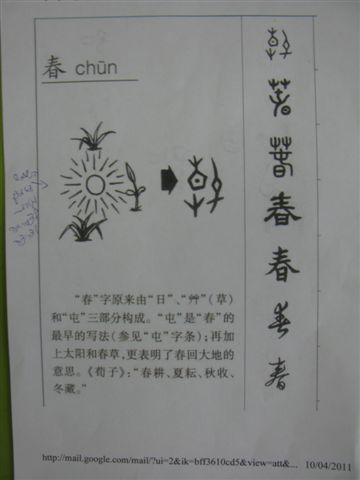 春 chūn
“春”字原来由“日”、“艸”(草)
和“屯”三部分构成。“屯”是“春”的
最早的写法(参见“屯”字条);再加
上太阳和春草,更表明了春回大地的
意思。《荀子》:“春耕、夏耘、秋收、
冬藏。”
春
春
春
春
http://mail.google.com/mail/?ui=2&ik=bff3610cd5&view=att&... 10/04/2011